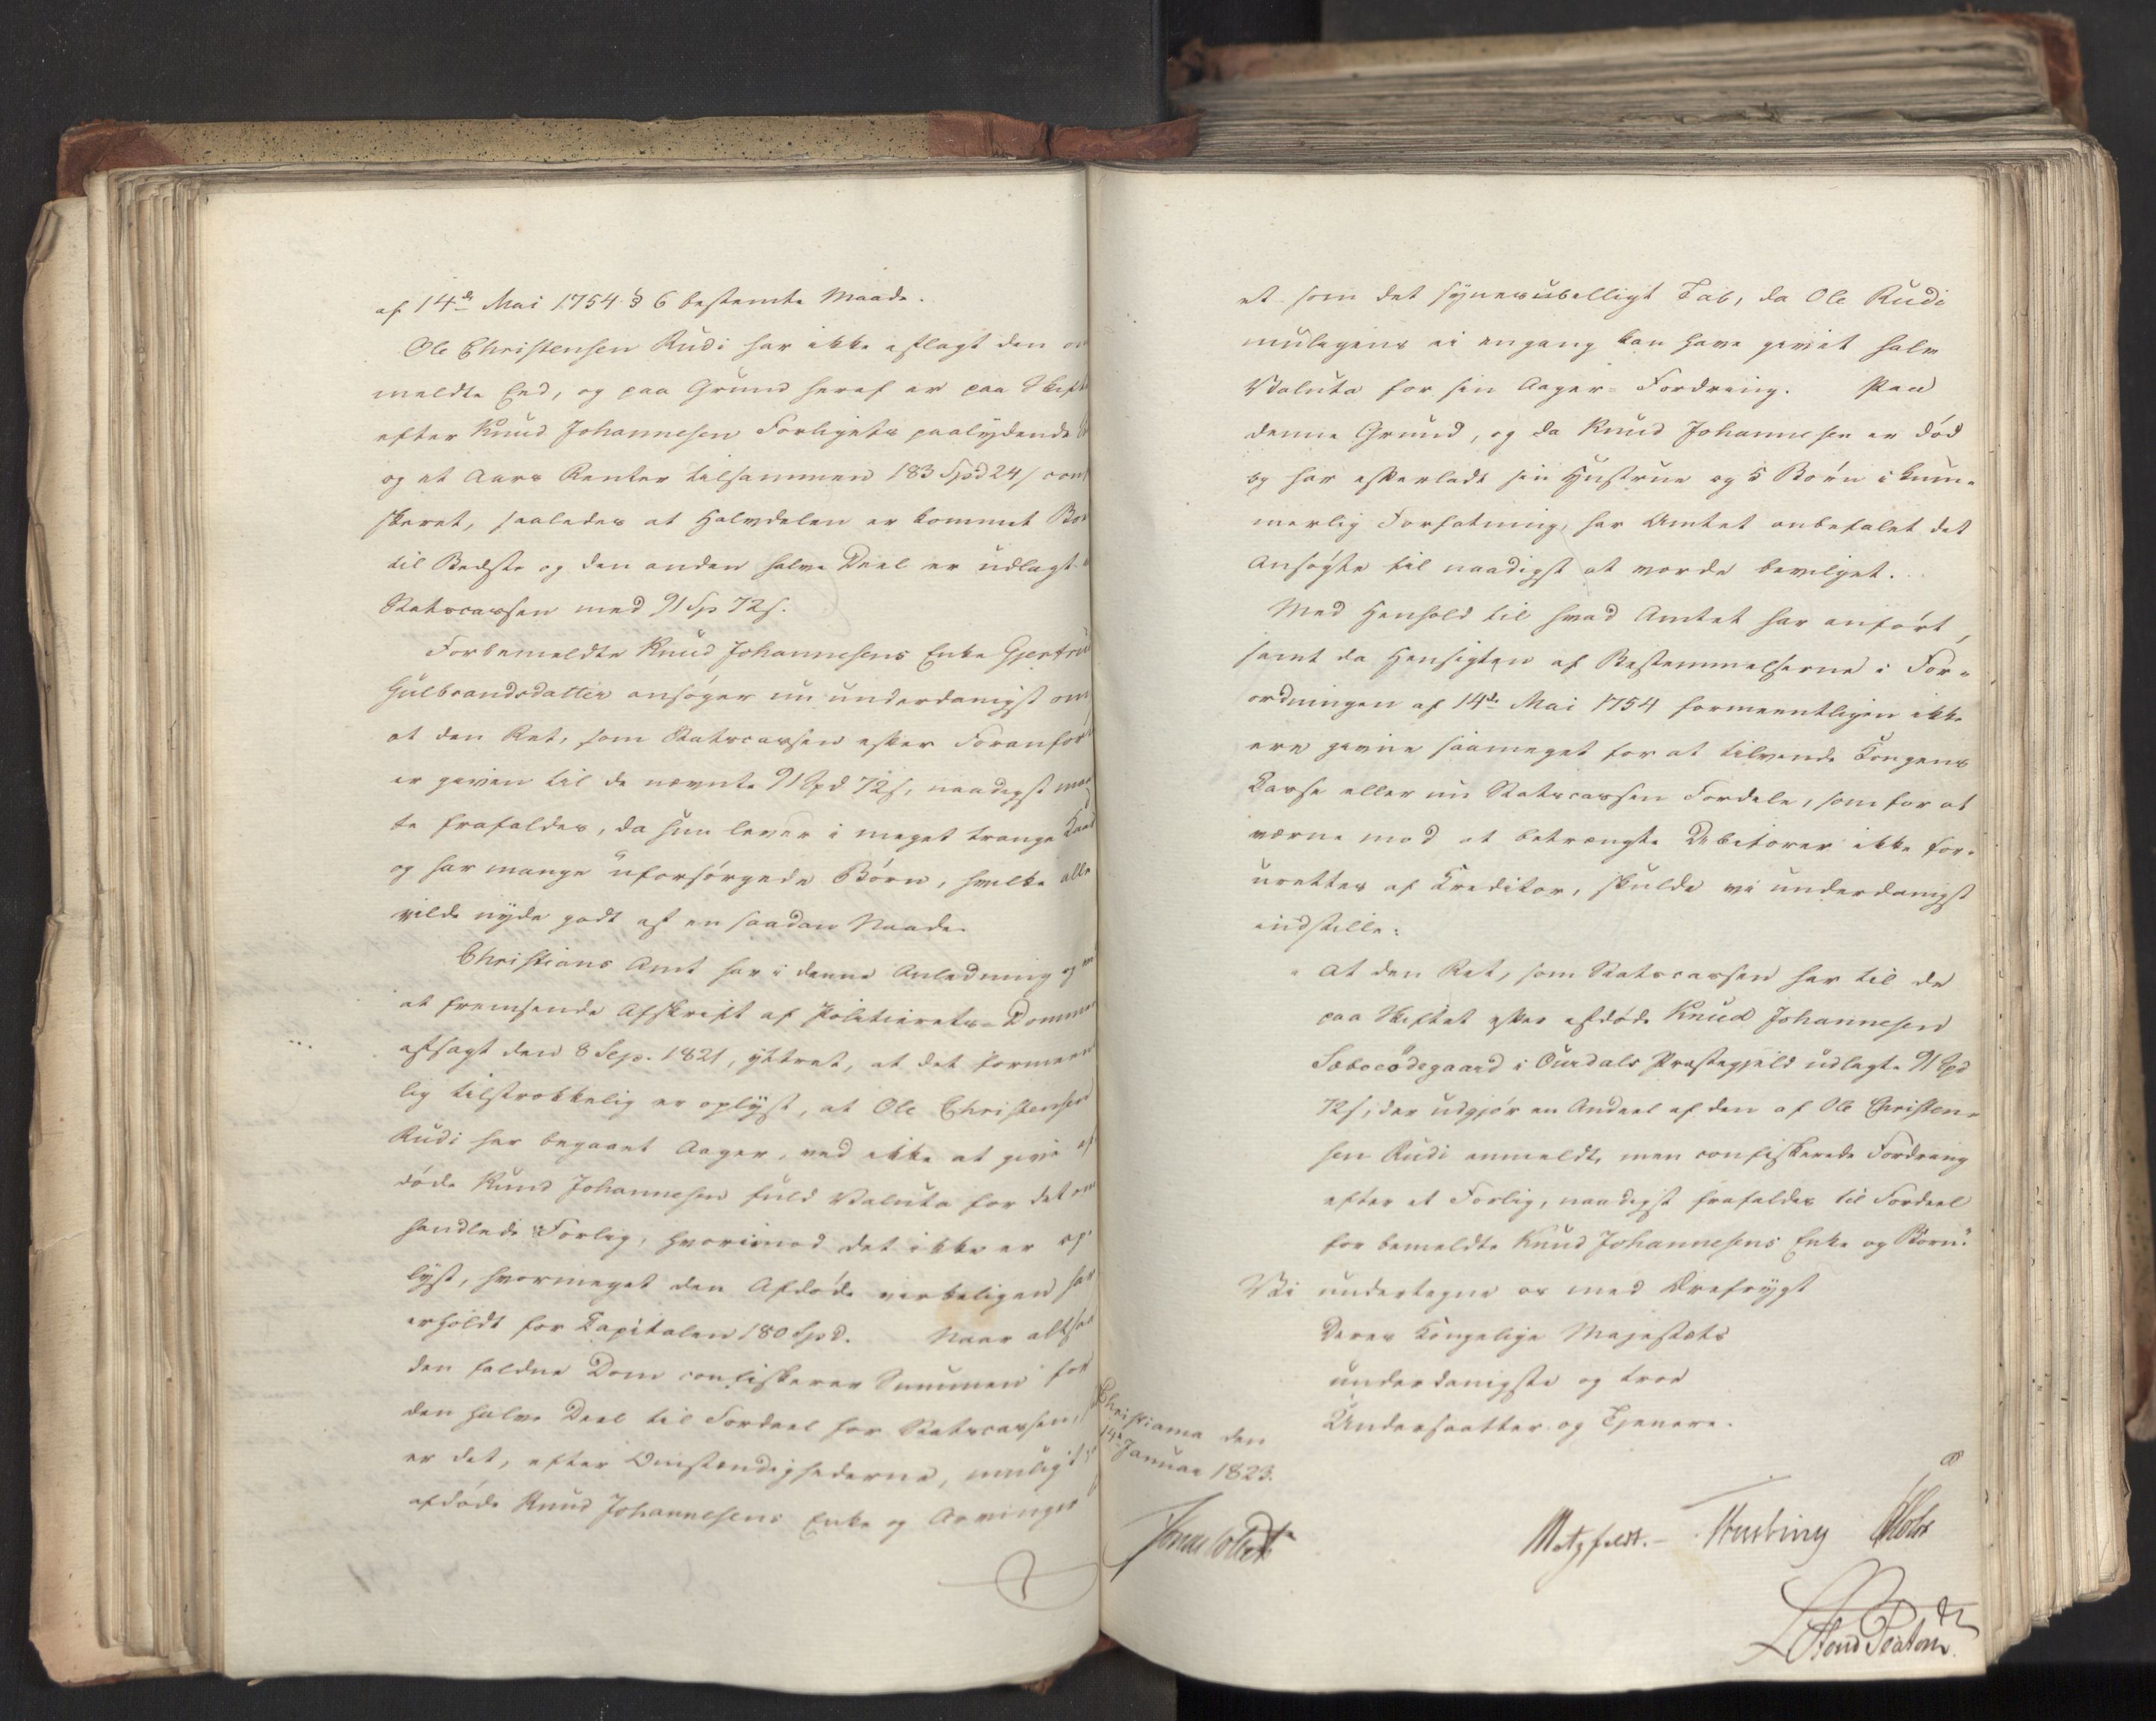 af 14de Mai 1754 § 6 bestemte Maade.
Ole Christensen Rudi har ikke aflagt den
meldte Eed, og paa Grund heraf er paa Skift
efter Knud Johannesen Forligets paalydende
og et Aars Renter tilsammen 183 Spd 24 s conf
skeret, saaledes at Halvdelen er kommet Bo
til Bedste og den anden halve Deel er udlagt
Statscassen med 91 Sp 72 s.
Forbemeldte Knud Johannesens Enke Gjertrud
Gulbrandsdatter ansøger nu underdanigst om
at den Ret, som Statscassen efter Foranfør
er given til de nævnte 91 Spd 72 s, naadigst maa
te frafaldes, da hun lever i meget trange Kaar
og har mange uforsørgede Børn, hvilke alle
vilde nyde godt af en saadan Naade.
Christians Amt har i denne Anledning og
at fremsende Afskrift af Politierets-Dommen
afsagt den 8 Sep. 1821, yttret, at det formeen
lig tilstrækkelig er oplyst, at Ole Christensen
Rudi har begaaet Aager, ved ikke at give af
døde Knud Johannesen fuld Valuta for det om
handlede Forlig, hvorimod det ikke er op
lyst, hvormeget den Afdøde virkeligen har
erholdt for Capitalen 180 Spd. Naar altsaa
den faldne Dom confiskerer Summen for
den halve Deel til Fordeel for Statscassen,
er det, efter Omstændighederne, muligt
afdøde Knud Johannesens Enke og Arvinger
et som det synes ubilligt Tab, da Ole Rudi
muligens ei engang kan have givet halv
Valuta for sin Aager-Fordring. Paa
denne Grund, og da Knud Johannesen er død
og har efterladt sin Hustrue og 5 Børn i kum-
merlig Forfatning, har Amtet anbefalet det
Ansøgte til naadigst at vorde bevilget.
Med Henhold til hvad Amtet har anført,
samt da Hensigten af Bestemmelserne i For-
ordningen af 14de Mai 1754 formeentligen ikke
ere givne saameget for at tilvende Kongens
Casse eller nu Statscassen Fordele, som for at
værne mod at betrængte Debitorer ikke for-
urettes af Creditor, skulde vi underdanigst
indstille:
"At den Ret, som Statscassen har til de
paa Skiftet efter afdøde Knud Johannesen
Sæboeødegaard i Ourdals Præstegjeld udlagte 91 Spd
72 s, der udgjør en Andeel af den af Ole Christen-
sen Rudi anmeldte men confiskerede Fordring
efter et Forlig, naadigst frafaldes til Fordeel
for bemeldte Knud Johannesens Enke og Børn."
Vi undertegne os med Ærefrygt
Deres Kongelige Majestæts
underdanigste og troe
Undersaatter og Tjenere.
Christiania den
14de Januar 1823.
Jonas Collett
Motzfeldt. Krebs Holst